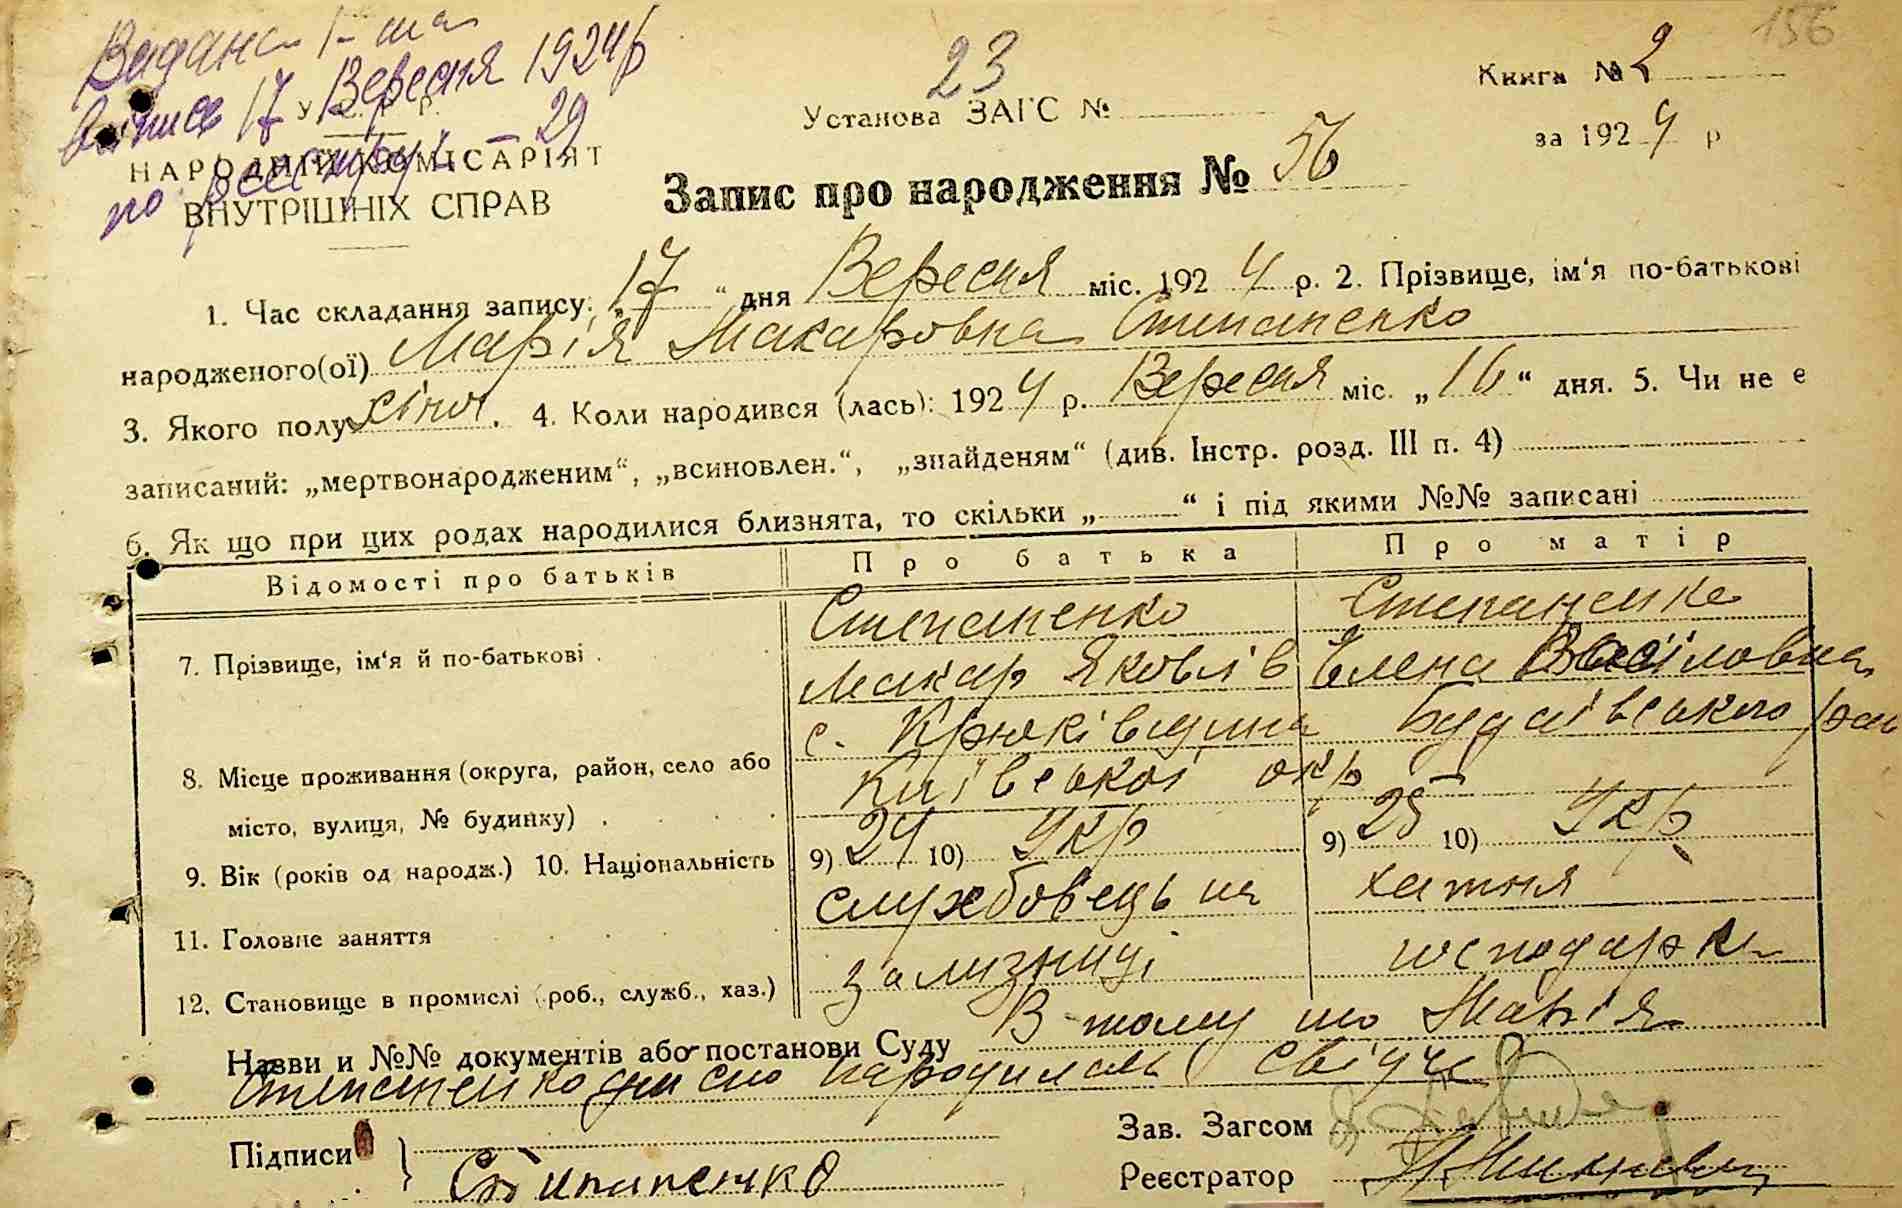 156
Видана 1-ша
витись 17 Вересня 1924 р
по реєстру № – 29
У. С. Р. Р.
НАРОДНИЙ КОМІСАРІЯТ
ВНУТРІШНІХ СПРАВ
Установа ЗАГС № 23
Книга № 2
за 1924 р
Запис про народження № 56
1. Час складання запису: „17“ дня Вересня міс. 1924 р. 2. Прізвище, ім‘я по-батькові
народженого(ої) Марія Макаровна Степаненко
3. Якого полу жіноч. 4. Коли народився (лась): 1924 р. Вересня міс. „16“ дня. 5. Чи не е
записаний: „мертвонародженим“, „всиновлен.“, „знайденям“ (див. Інстр. розд. III п. 4)
6. Як що при цих родах народилися близнята, то скільки „ “ і під якими №№ записані
Відомості про батьків Про батька Про матір
7. Прізвище, ім‘я й по-батькові Степаненко Степаненко
Макар Яковлів Єлена Васіловна
8. Місце проживання (округа, район, село або с. Крюківщина Будаївського рай
місто, вулиця, № будинку) Київської окр
9. Вік (років од народж.) 10. Національність 9) 24 10) Укр 9) 25 10) Укр
11. Головне заняття службовець на хатня
12. Становище в промислі (роб., служб., хаз.) зализниці господарка
Назви и №№ документів або постанови Суду В тому що Марія
Степаненко дисно народилась свідче
Підписи Степаненко
Зав. Загсом
Реєстратор